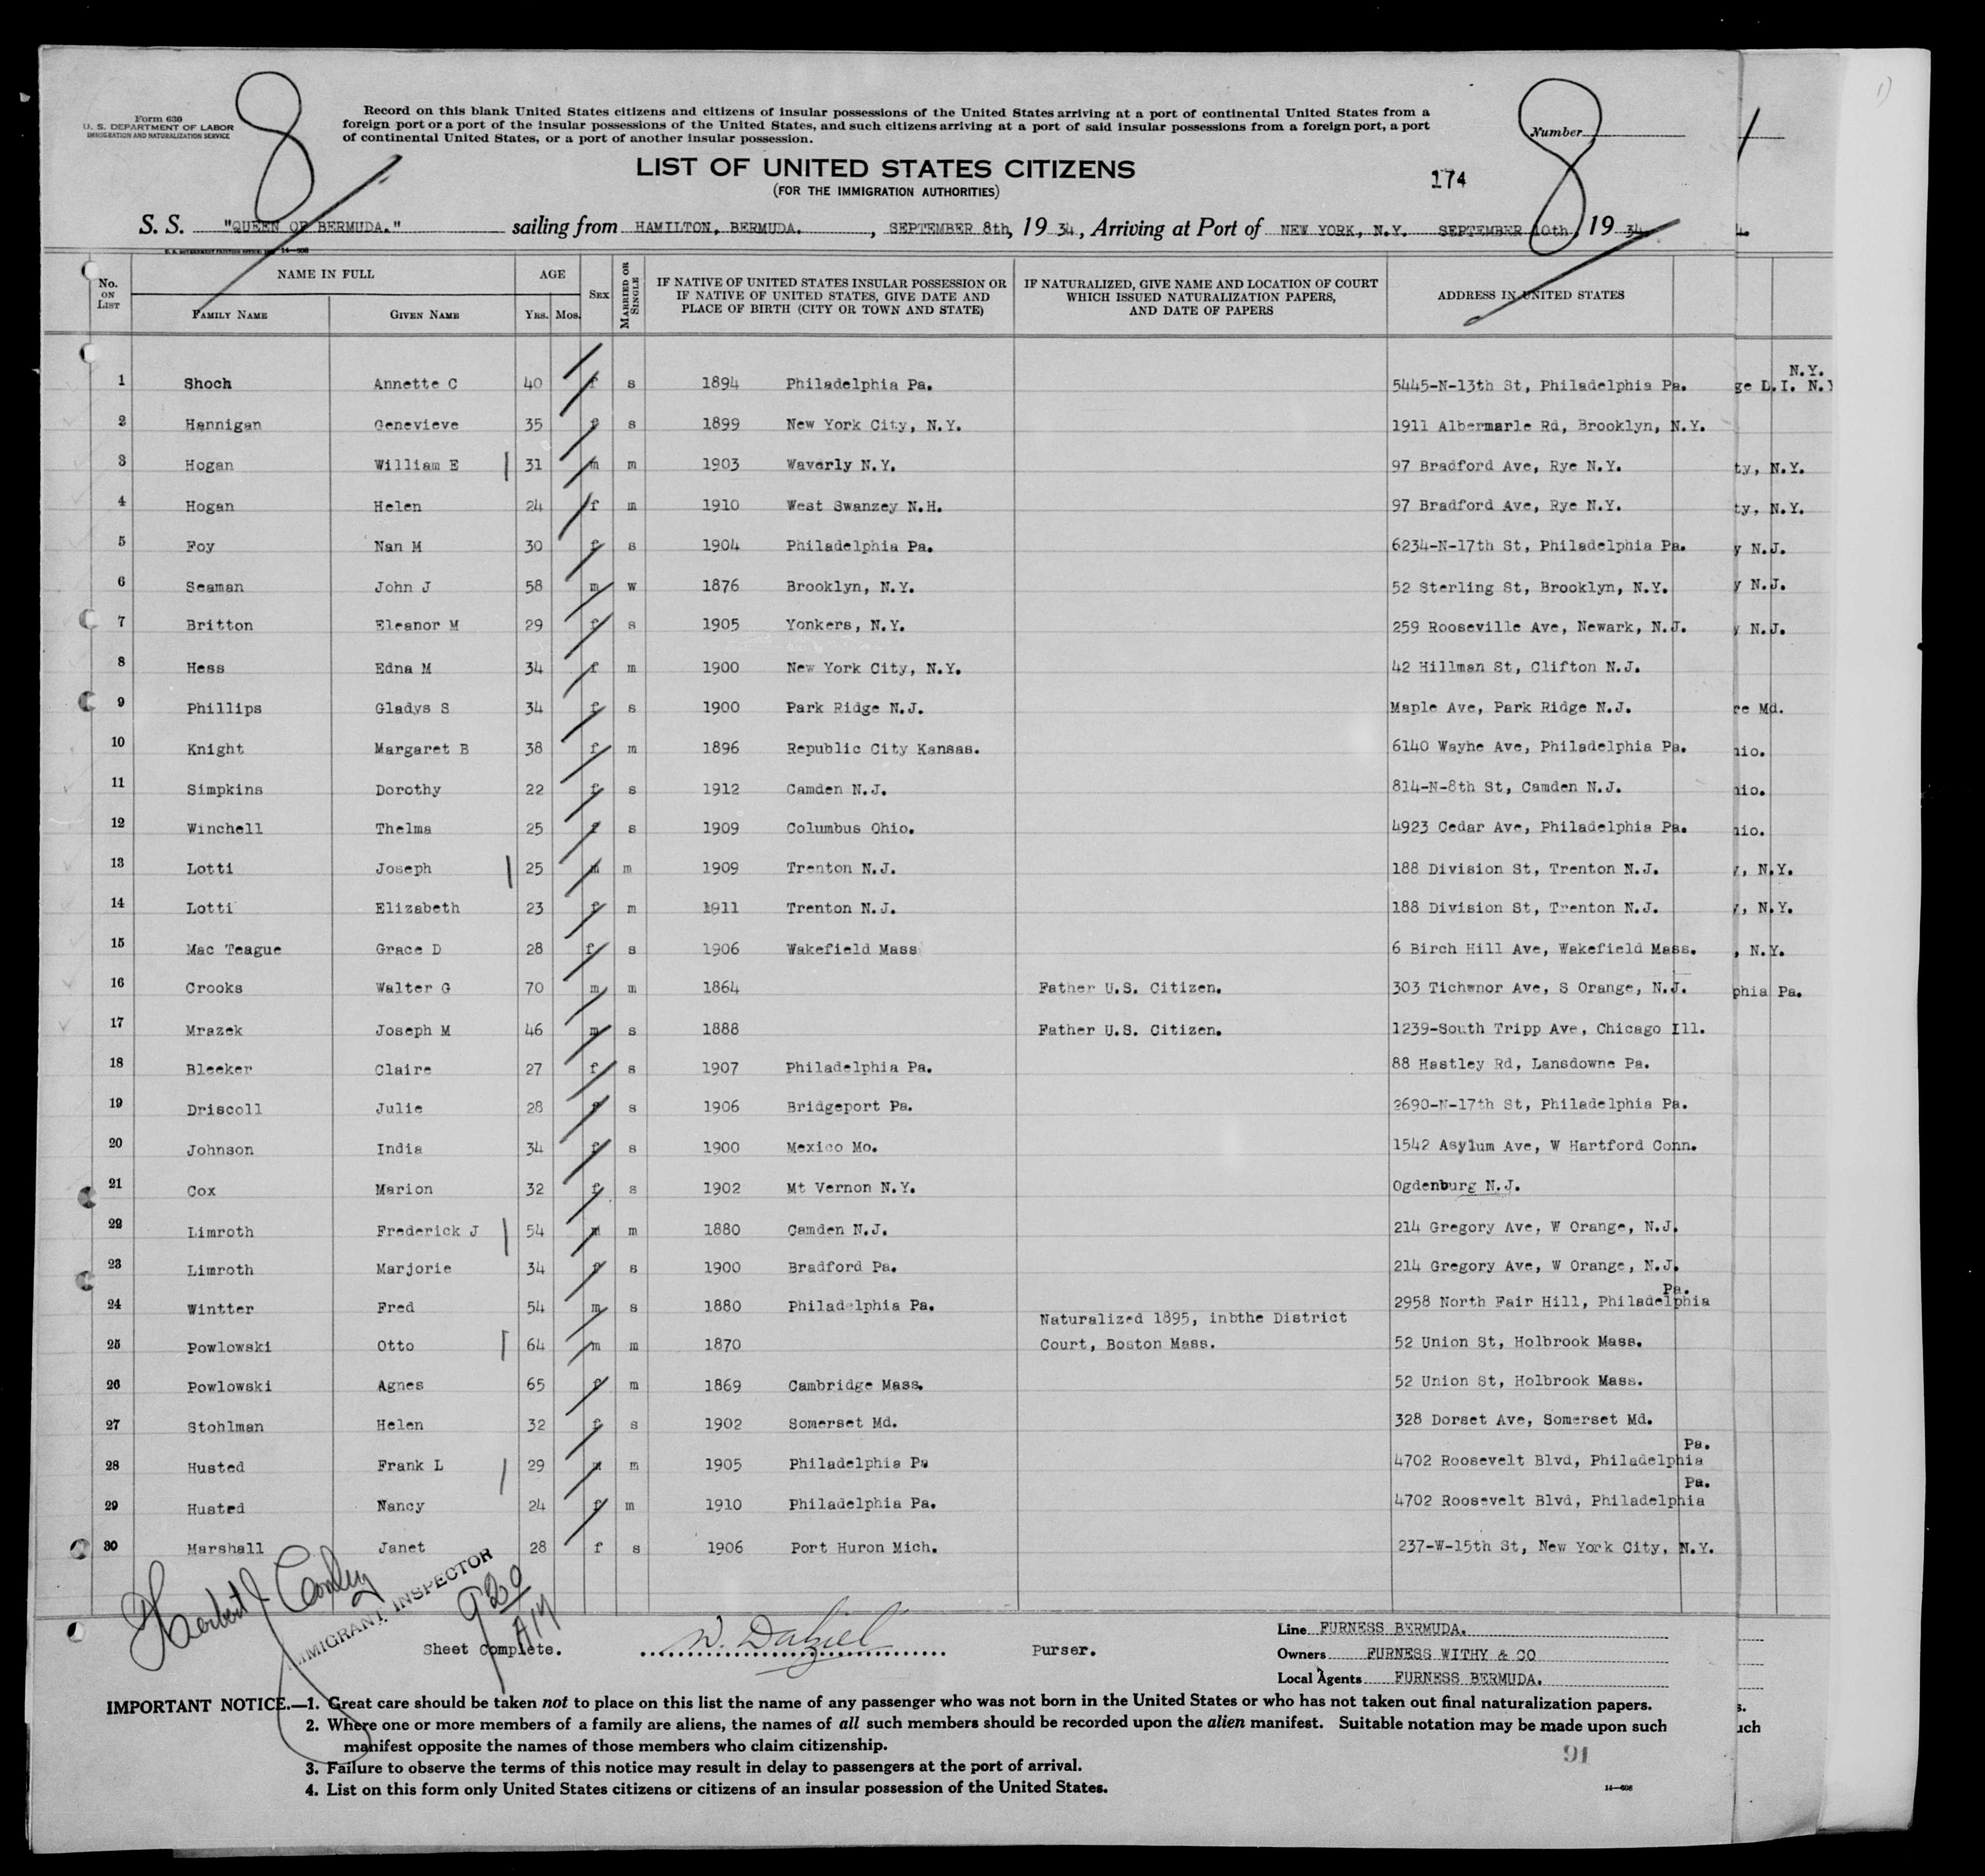 8
8
Form 630
U. S. DEPARTMENT OF LABOR
IMMIGRATION AND NATURALIZATION SERVICE
Record on this blank United States citizens and citizens of insular possessions of the United States arriving at a port of continental United States from a
foreign port or a port of the insular possessions of the United States, and such citizens arriving at a port of said insular possessions from a foreign port, a port
of continental United States, or a port of another insular possession.
Number
LIST OF UNITED STATES CITIZENS
(FOR THE IMMIGRATION AUTHORITIES)
174
S. S. "QUEEN OF BERMUDA." sailing from HAMILTON, BERMUDA. , SEPTEMBER 8th, 19 34, Arriving at Port of NEW YORK, N.Y. SEPTEMBER 10th, 19 34
No. ON LIST NAME IN FULL AGE SEX MARRIED OR SINGLE IF NATIVE OF UNITED STATES INSULAR POSSESSION OR IF NATIVE OF UNITED STATES, GIVE DATE AND PLACE OF BIRTH (CITY OR TOWN AND STATE) IF NATURALIZED, GIVE NAME AND LOCATION OF COURT WHICH ISSUED NATURALIZATION PAPERS, AND DATE OF PAPERS ADDRESS IN UNITED STATES
FAMILY NAME GIVEN NAME YRS. MOS.
1 Shoch Annette C 40 f s 1894 Philadelphia Pa. 5445-N-13th St, Philadelphia Pa.
2 Hannigan Genevieve 35 f s 1899 New York City, N.Y. 1911 Albermarle Rd, Brooklyn, N.Y.
3 Hogan William E 31 m m 1903 Waverly N.Y. 97 Bradford Ave, Rye N.Y.
4 Hogan Helen 24 f m 1910 West Swanzey N.H. 97 Bradford Ave, Rye N.Y.
5 Foy Nan M 30 f s 1904 Philadelphia Pa. 6234-N-17th St, Philadelphia Pa.
6 Seaman John J 58 m w 1876 Brooklyn, N.Y. 52 Sterling St, Brooklyn, N.Y.
7 Britton Eleanor M 29 f s 1905 Yonkers, N.Y. 259 Rooseville Ave, Newark, N.J.
8 Hess Edna M 34 f m 1900 New York City, N.Y. 42 Hillman St, Clifton N.J.
9 Phillips Gladys S 34 f s 1900 Park Ridge N.J. Maple Ave, Park Ridge N.J.
10 Knight Margaret B 38 f m 1896 Republic City Kansas. 6140 Wayne Ave, Philadelphia Pa.
11 Simpkins Dorothy 22 f s 1912 Camden N.J. 814-N-8th St, Camden N.J.
12 Winchell Thelma 25 f s 1909 Columbus Ohio. 4923 Cedar Ave, Philadelphia Pa.
13 Lotti Joseph 25 m m 1909 Trenton N.J. 188 Division St, Trenton N.J.
14 Lotti Elizabeth 23 f m 1911 Trenton N.J. 188 Division St, Trenton N.J.
15 Mac Teague Grace D 28 f s 1906 Wakefield Mass 6 Birch Hill Ave, Wakefield Mass.
16 Crooks Walter G 70 m m 1864 Father U.S. Citizen. 303 Tichenor Ave, S Orange, N.J.
17 Mrazek Joseph M 46 m s 1888 Father U.S. Citizen. 1239-South Tripp Ave, Chicago Ill.
18 Bleeker Claire 27 f s 1907 Philadelphia Pa. 88 Hastley Rd, Lansdowne Pa.
19 Driscoll Julie 28 f s 1906 Bridgeport Pa. 2690-N-17th St, Philadelphia Pa.
20 Johnson India 34 f s 1900 Mexico Mo. 1542 Asylum Ave, W Hartford Conn.
21 Cox Marion 32 f s 1902 Mt Vernon N.Y. Ogdenburg N.J.
22 Limroth Frederick J 54 m m 1880 Camden N.J. 214 Gregory Ave, W Orange, N.J.
23 Limroth Marjorie 34 f s 1900 Bradford Pa. 214 Gregory Ave, W Orange, N.J.
24 Wintter Fred 54 m s 1880 Philadelphia Pa. 2958 North Fair Hill, Philadelphia Pa.
Naturalized 1895, inbthe District
25 Powlowski Otto 64 m m 1870 Court, Boston Mass. 52 Union St, Holbrook Mass.
26 Powlowski Agnes 65 f m 1869 Cambridge Mass. 52 Union St, Holbrook Mass.
27 Stohlman Helen 32 f s 1902 Somerset Md. 328 Dorset Ave, Somerset Md.
28 Husted Frank L 29 m m 1905 Philadelphia Pa 4702 Roosevelt Blvd, Philadelphia Pa.
29 Husted Nancy 24 f m 1910 Philadelphia Pa. 4702 Roosevelt Blvd, Philadelphia Pa.
30 Marshall Janet 28 f s 1906 Port Huron Mich. 237-W-15th St, New York City, N.Y.
IMMIGRANT INSPECTOR
920
AM
Sheet complete. W. Dalziel Purser.
Line FURNESS BERMUDA.
Owners FURNESS WITHY & CO
Local Agents FURNESS BERMUDA.
IMPORTANT NOTICE.—1. Great care should be taken not to place on this list the name of any passenger who was not born in the United States or who has not taken out final naturalization papers.
2. Where one or more members of a family are aliens, the names of all such members should be recorded upon the alien manifest. Suitable notation may be made upon such
manifest opposite the names of those members who claim citizenship.
3. Failure to observe the terms of this notice may result in delay to passengers at the port of arrival.
4. List on this form only United States citizens or citizens of an insular possession of the United States.
91
14—608